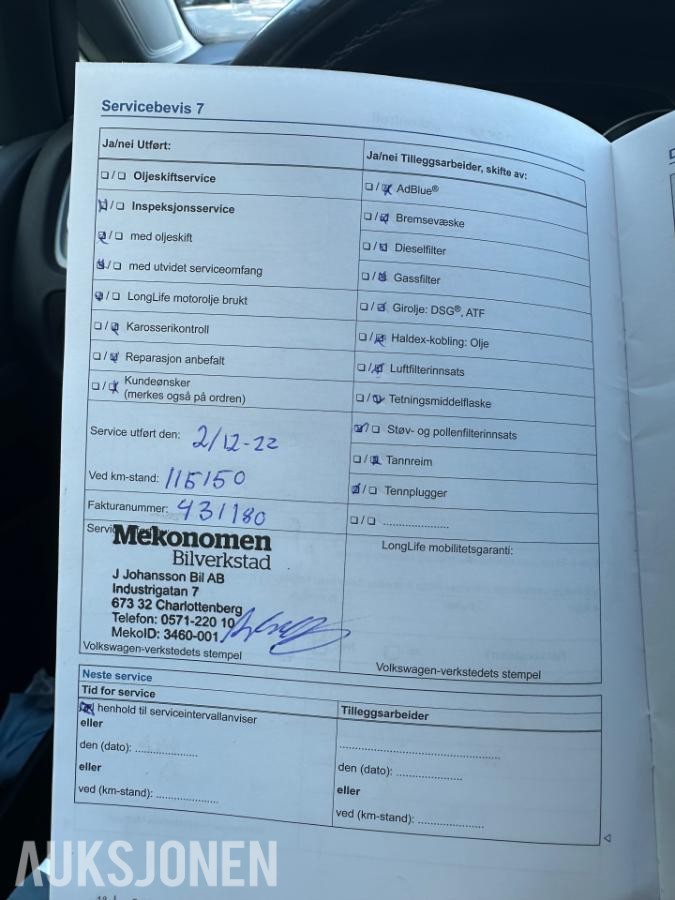 Servicebevis 7
Ja/nei Utført:
☐/☐ Oljeskiftservice
☒/☐ Inspeksjonsservice
☒/☐ med oljeskift
☒/☐ med utvidet serviceomfang
☒/☐ LongLife motorolje brukt
☐/☒ Karosserikontroll
☐/☒ Reparasjon anbefalt
☐/☒ Kundeønsker
(merkes også på ordren)
Service utført den: 2/12-22
Ved km-stand: 115150
Fakturanummer: 431180
Mekonomen
Bilverkstad
J Johansson Bil AB
Industrigatan 7
673 32 Charlottenberg
Telefon: 0571-220 10
MekoID: 3460-001
Volkswagen-verkstedets stempel
Ja/nei Tilleggsarbeider, skifte av:
☐/☒ AdBlue®
☐/☒ Bremsevæske
☐/☒ Dieselfilter
☐/☒ Gassfilter
☐/☒ Girolje: DSG®, ATF
☐/☒ Haldex-kobling: Olje
☐/☒ Luftfilterinnsats
☐/☒ Tetningsmiddelflaske
☒/☐ Støv- og pollenfilterinnsats
☐/☒ Tannreim
☒/☐ Tennplugger
☐/☐ .....................
LongLife mobilitetsgaranti:
Volkswagen-verkstedets stempel
Neste service
Tid for service
☒ henhold til serviceintervallanviser
eller
den (dato): ....................
eller
ved (km-stand): ....................
Tilleggsarbeider
..................................................
den (dato): .....................
eller
ved (km-stand): .....................
AUKSJONEN